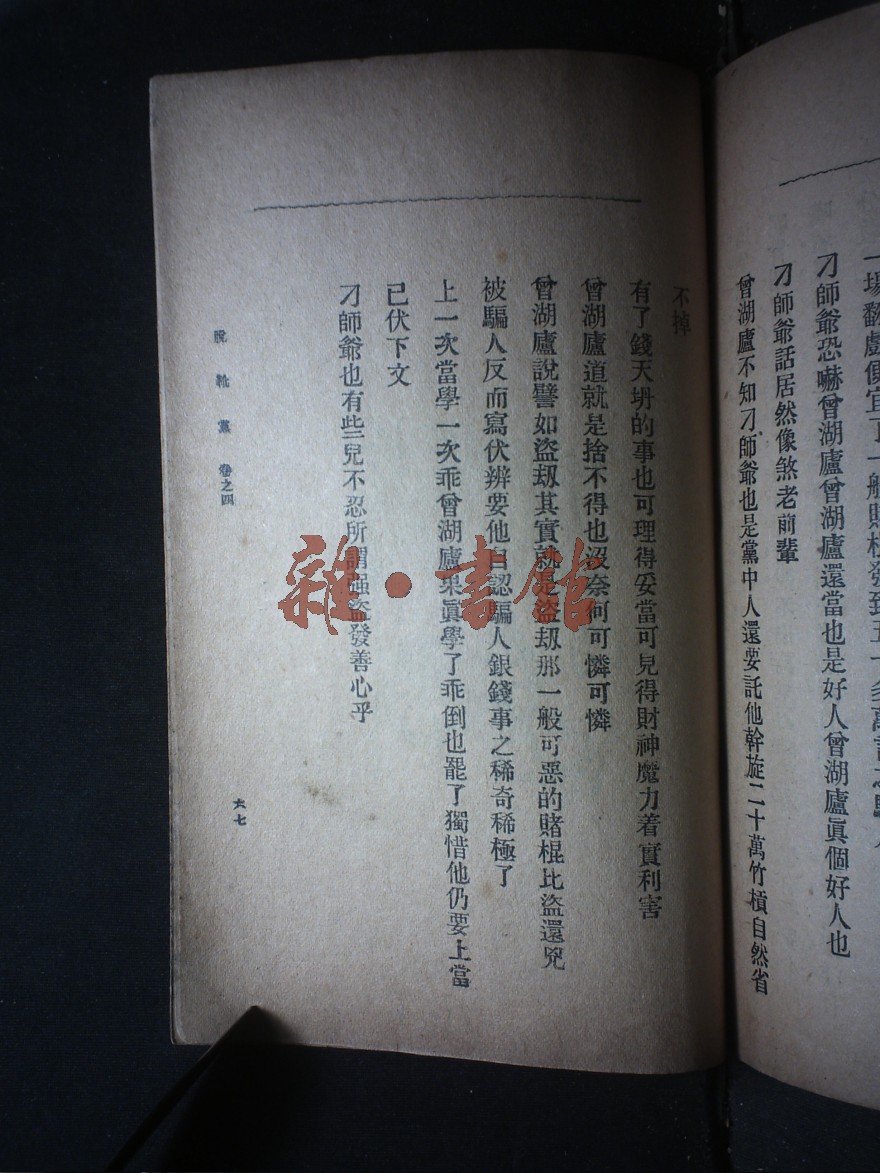 刁師爺恐嚇曾湖廬曾湖廬還當也是好人曾湖廬眞個好人也
刁師爺話居然像煞老前輩
曾湖廬不知刁師爺也是黨中人還要託他幹旋二十萬竹槓自然省
不掉
有了錢天坍的事也可理得妥當可見得財神魔力着實利害
曾湖廬道就是捨不得也沒奈何可憐可憐
曾湖廬說譬如盜刼其實就是盜刼那一般可惡的賭棍比盜還兇
被騙人反而寫伏辨要他自認騙人銀錢事之稀奇稀極了
上一次當學一次乖曾湖廬果眞學了乖倒也罷了獨惜他仍要上當
已伏下文
刁師爺也有些兒不忍所謂强盜發善心乎
脫靴黨 卷之四
六七
雜·書館